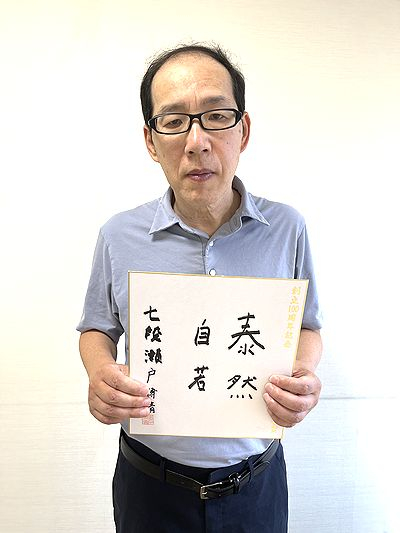 創立100周年記念
泰然
自若
七段 瀬戸